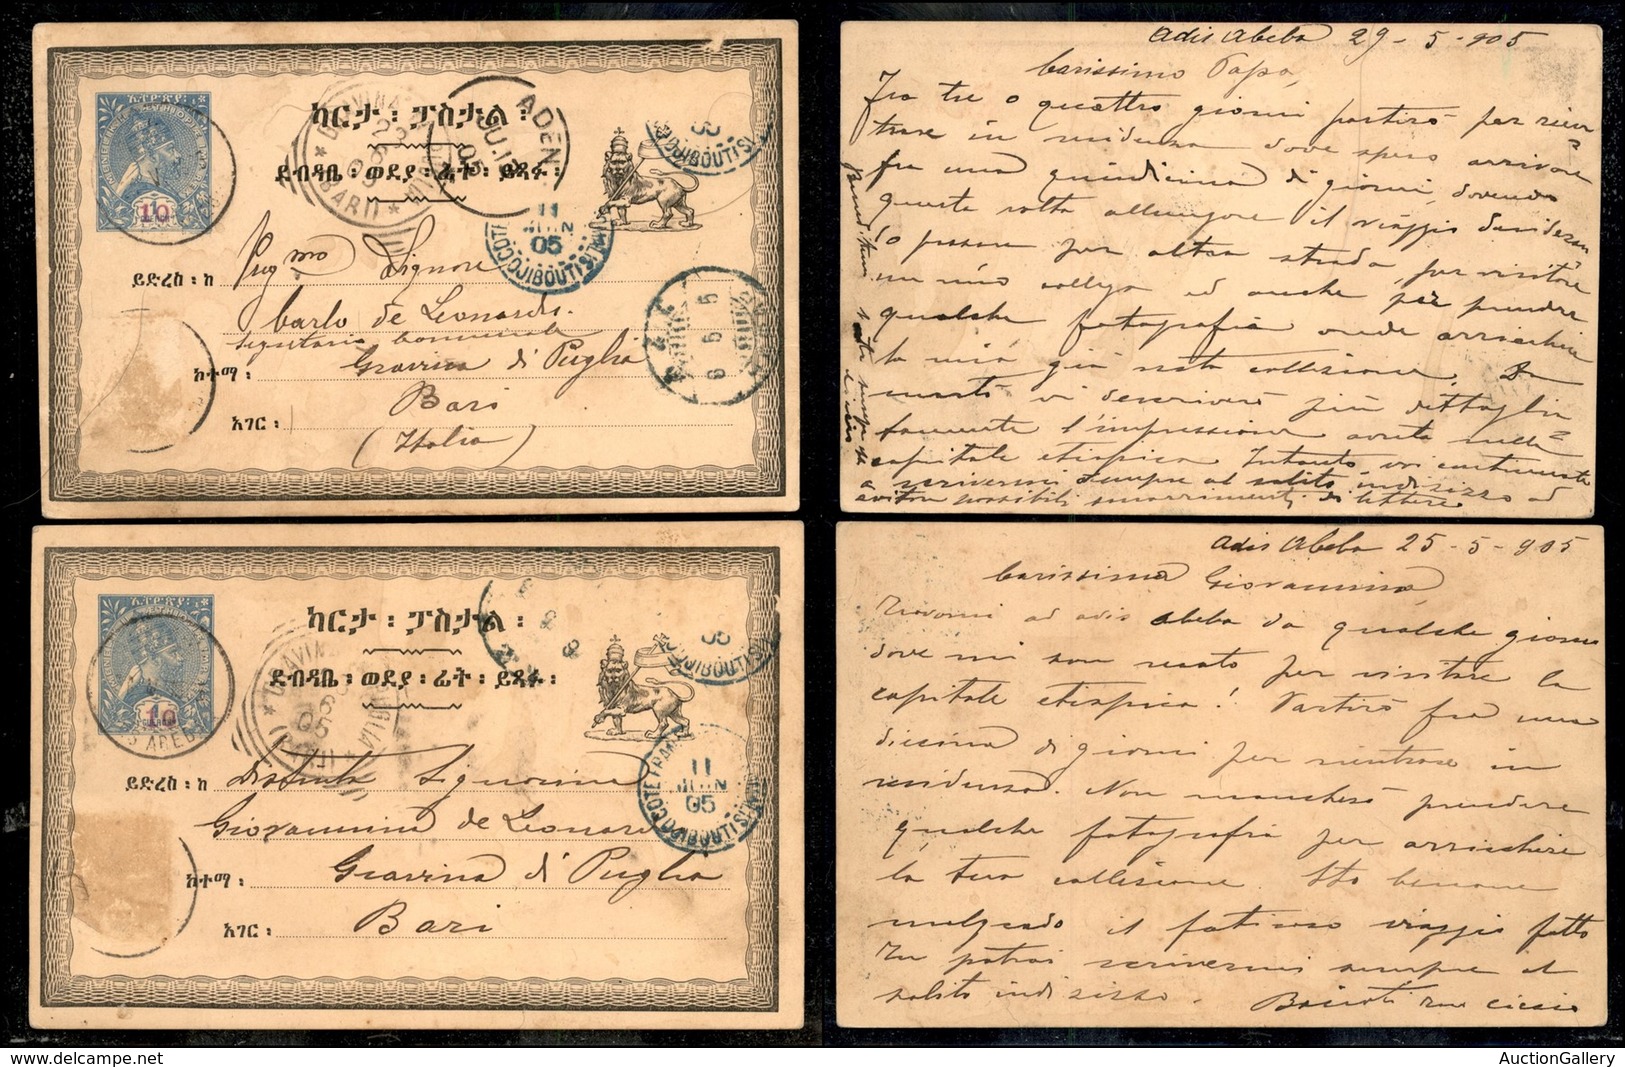 ካርታ፡ ፖስታል፡
ደብዳቤ፡ ወደያ፡ ፊት፡ ይጻፉ፡
ADEN
05
COTE DJIBOUTI
11
JUIN
05
BARI
10
ይድረስ፡ ከ Preg.mo Signore
Carlo de Leonardis
Segretario Comunale
ከተማ፡ Gravina di Puglia
አገር፡ Bari
(Italia)
Adis Abeba 29-5-905
Carissimo Papà,
Fra tre o quattro giorni partirò per rien
trare in residenza dove spero arrivare
fra una quindicina di giorni, dovendo
questa volta allungare il viaggio desideran
do passare per altra strada per visitare
un mio collega ed anche per prendere
qualche fotografia onde arricchire
la mia già nota collezione. In
seguito vi descriverò più dettaglia
tamente l'impressione avuta nella
capitale etiopica. Intanto voi continuate
a scrivermi sempre al solito indirizzo ad
evitare possibili smarrimenti di lettere
ካርታ፡ ፖስታል፡
ደብዳቤ፡ ወደያ፡ ፊት፡ ይጻፉ፡
DJIBOUTI
11
JUIN
05
10
ይድረስ፡ ከ Distinta Signorina
Giovannina de Leonardis
ከተማ፡ Gravina di Puglia
አገር፡ Bari
Adis Abeba 25-5-905
Carissima Giovannina,
Trovomi ad Adis Abeba da qualche giorno
dove mi son recato per visitare la
capitale etiopica! Partirò fra una
diecina di giorni per rientrare in
residenza. Non mancherò prendere
qualche fotografia per arricchire
la tua collezione. Sto benone
malgrado il faticoso viaggio fatto
Tu potrai scrivermi sempre al
solito indirizzo. Bacioti tuo Ciccio
AuctionGallery